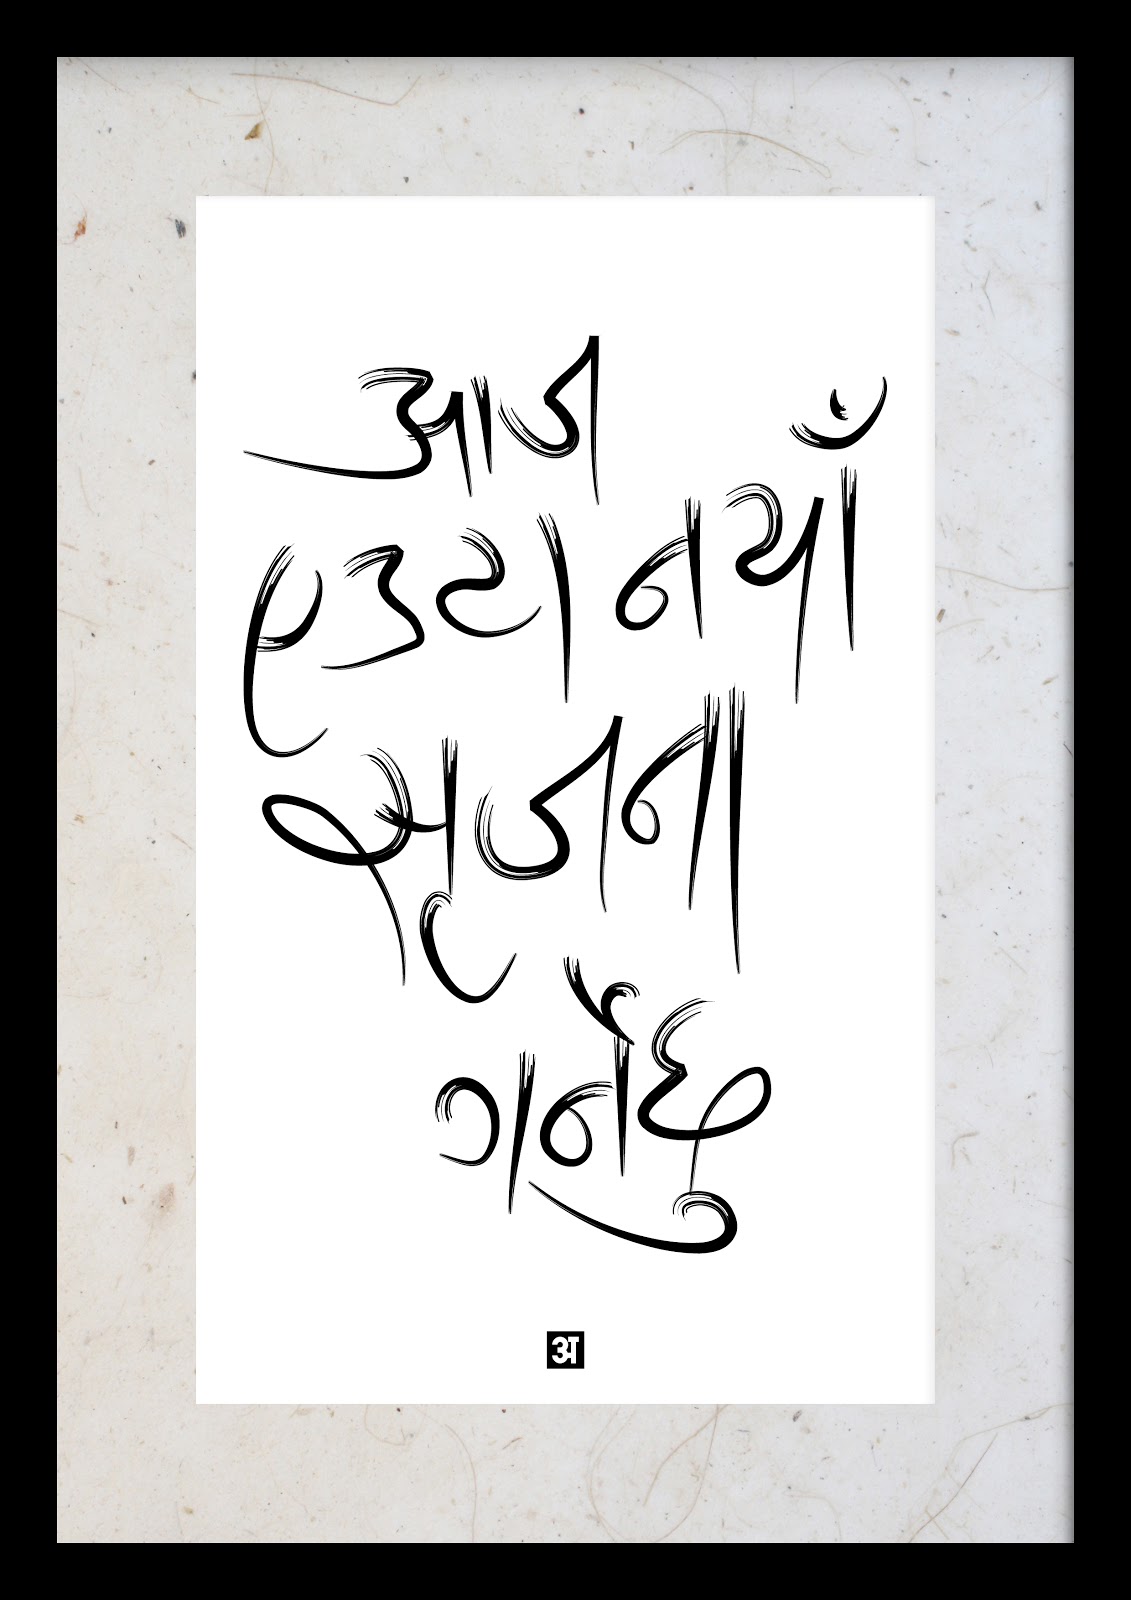 आज
एउटा नयाँ
सृजना
गर्नेछु
अ